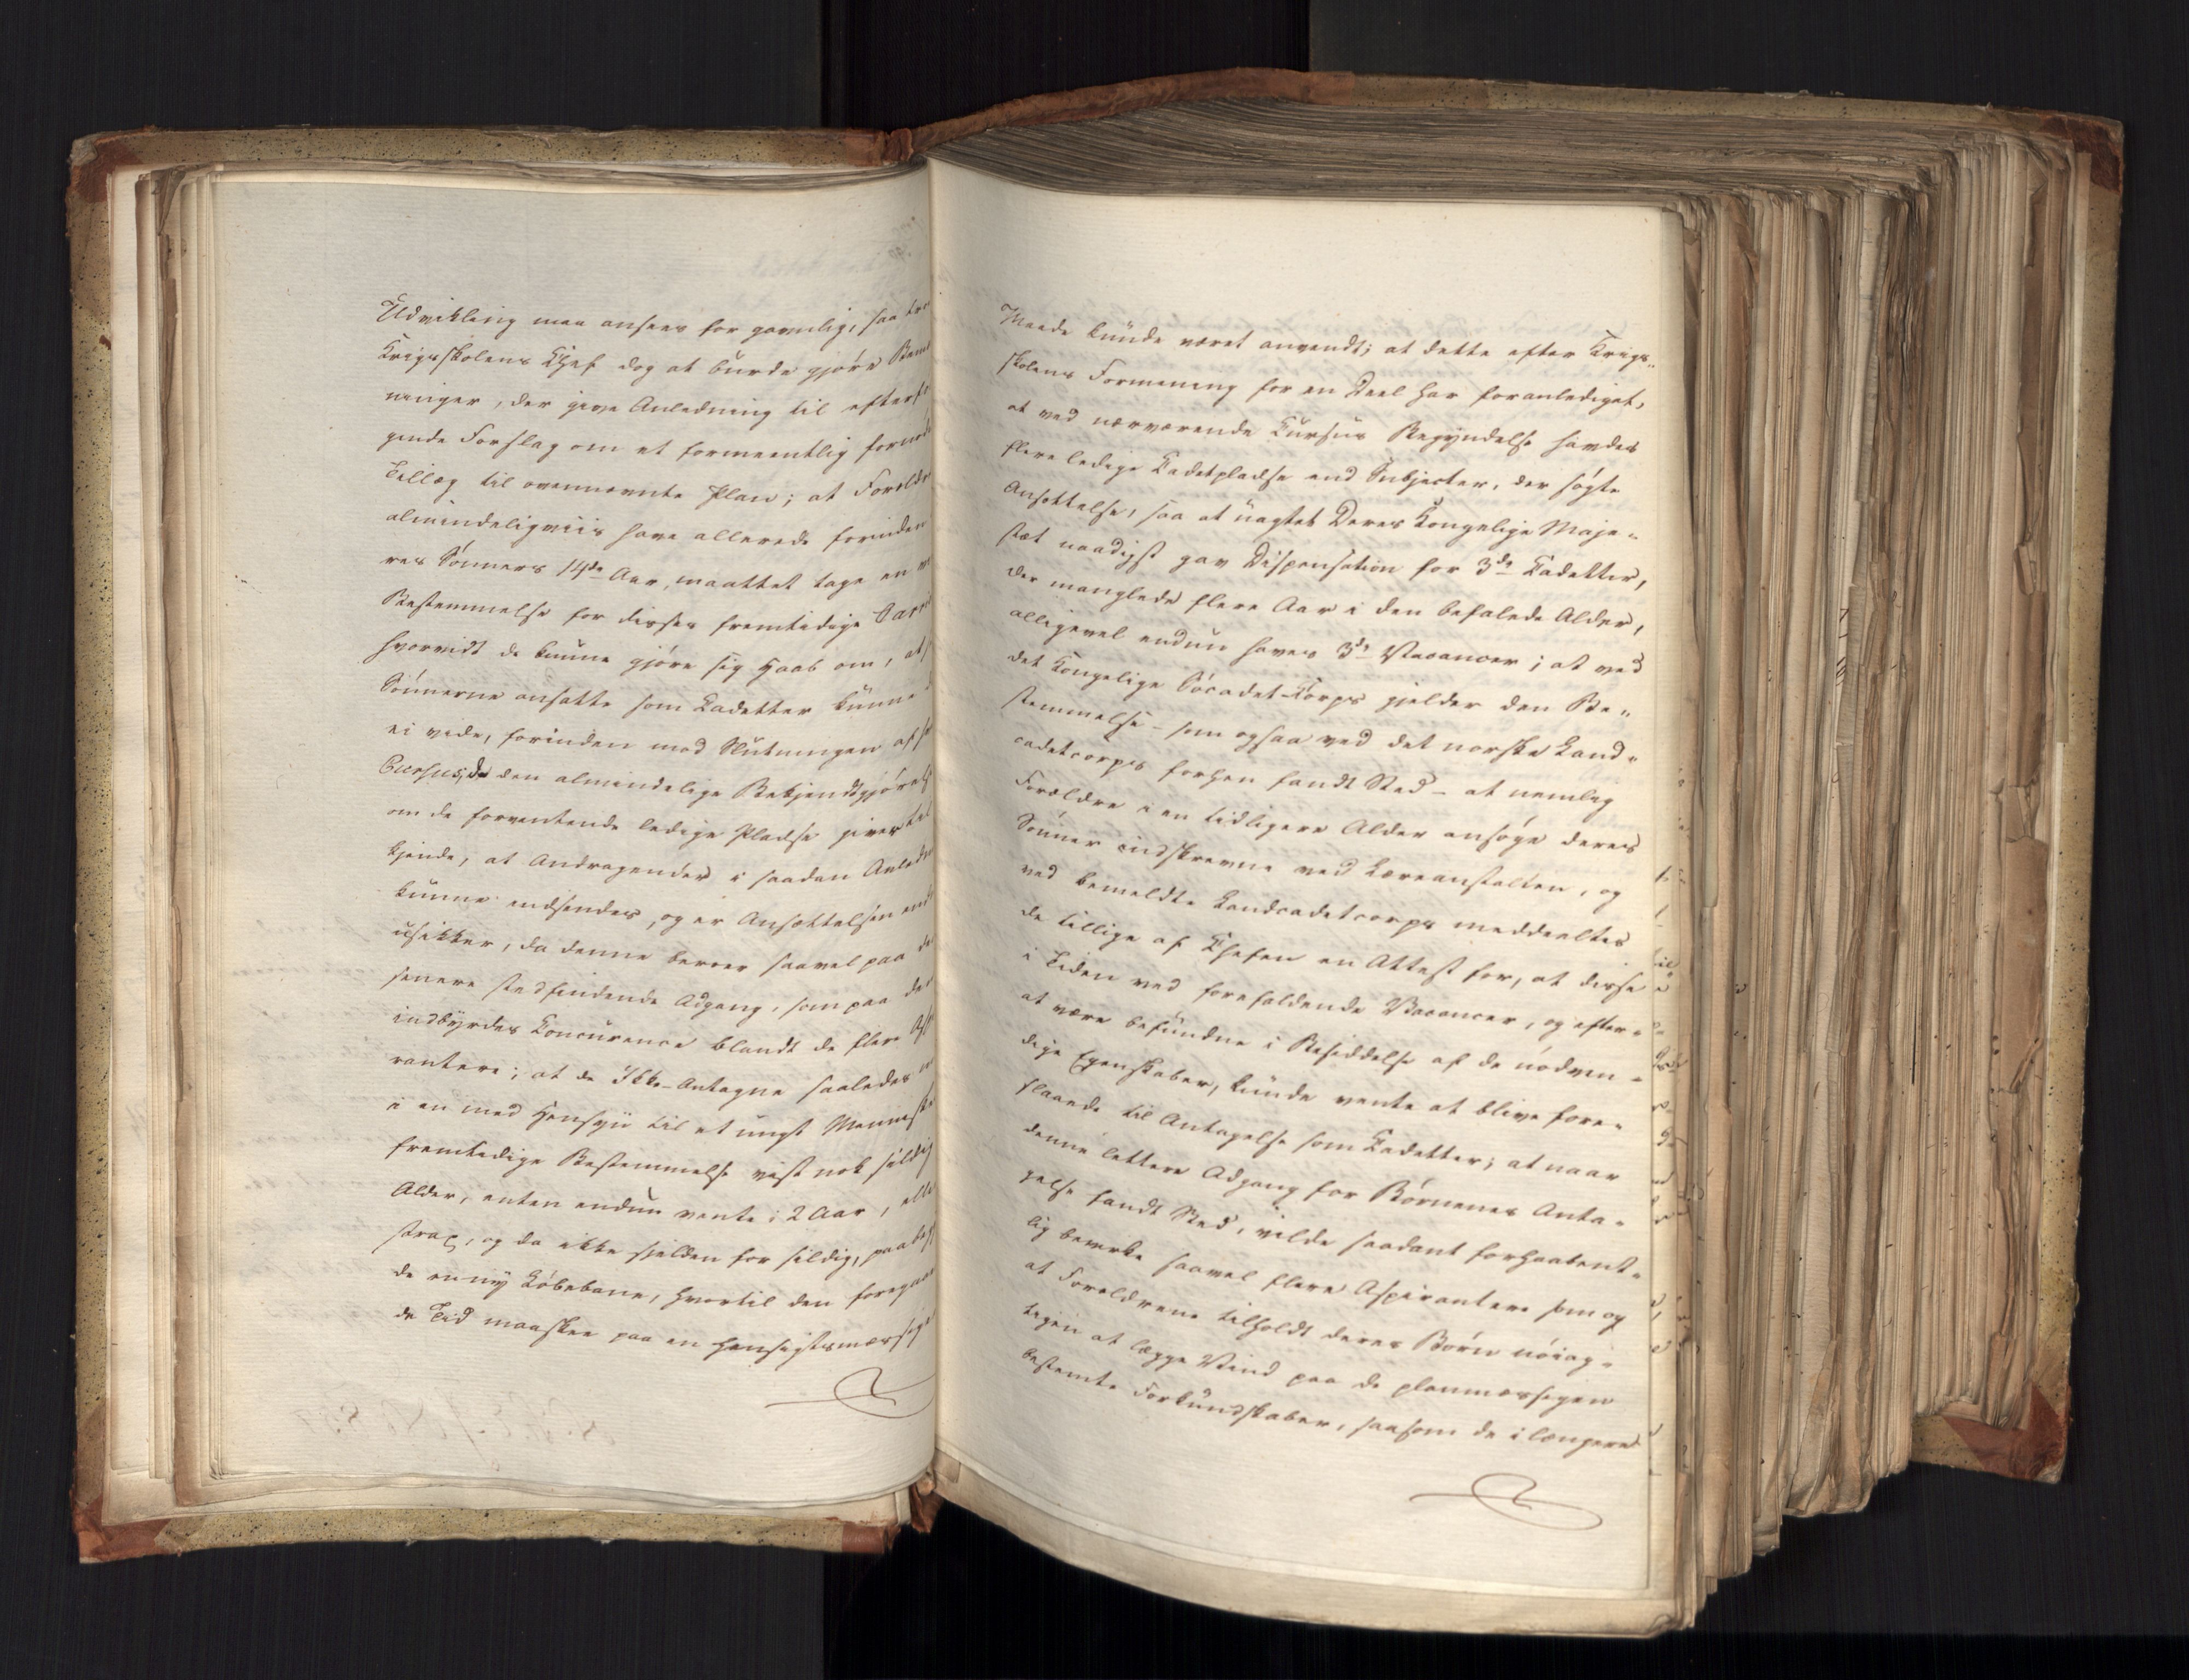 Udvikling maa ansees for gavnlig, saa tro
Krigsskolens Chef dog at burde gjøre Bem
ninger, der give Anledning til efterf
gende Forslag om et formeentlig fornøde
Tillæg til ovennævnte Plan; at Forældr
almindeligviis have allerede forinden
res Sønners 14de Aar, maattet tage en
Bestemmelse for disses fremtidige Carri
hvorvidt de kunne gjøre sig Haab om, at
Sønnerne ansatte som Kadetter kunne
ei vide, forinden mod Slutningen af
Cursus, da den almindelige Bekjendtgjørels
om de forventende ledige Pladse giver til
kjende, at Andragender i saadan Anledn
kunne indsendes, og er Ansættelsen end
usikker, da denne beroer saavel paa de
senere stedfindende Adgang, som paa den
indbyrdes Concurence blandt de flere Asp
rantere; at de Ikke-Antagne saaledes
i en med Hensyn til et ungt Menneske
fremtidige Bestemmelse vist nok sildig
Alder, enten endnu vente i 2 Aar, elle
strax, og da ikke sjelden for sildig, paabe
de en ny Løbebane, hvortil den foregaae
de Tid maaskee paa en hensigtsmæssige
Maade kunde været anvendt; at dette efter Krigs-
skolens Formening for en Deel har foranlediget,
at ved nærværende Cursus Begyndelse havdes
flere ledige Cadetpladse end Subjecter, der søgte
Ansættelse, saa at uagtet Deres Kongelige Maje-
stæt naadigst gav Dispensation for 3de Cadetter,
der manglede flere Aar i den befalede Alder,
alligevel endnu haves 3de Vacancer; at ved
det Kongelige Søcadet-Corps gjelder den Be-
stemmelse - som ogsaa ved det norske Land-
cadetcorps forhen fandt Sted - at nemlig
Forældre i en tidligere Alder ansøge deres
Sønner indskrevne ved Læreanstalten, og
ved bemeldte Landcadetcorps meddeeltes
de tillige af Chefen en Attest for, at disse
i Tiden ved forefaldende Vacancer, og efter-
at være befundne i Besiddelse af de nødven-
dige Egenskaber, kunde vente at blive fore-
slaaede til Antagelse som Cadetter; at naar
denne lettere Adgang for Børnenes Anta-
gelse fandt Sted, vilde saadant forhaabent-
lig bevirke saavel flere Aspirantere som og
at Forældrene tilholdt deres Børn nøiag-
tigen at lægge Vind paa de planmæssigen
bestemte Forkundskaber, saasom de i længere